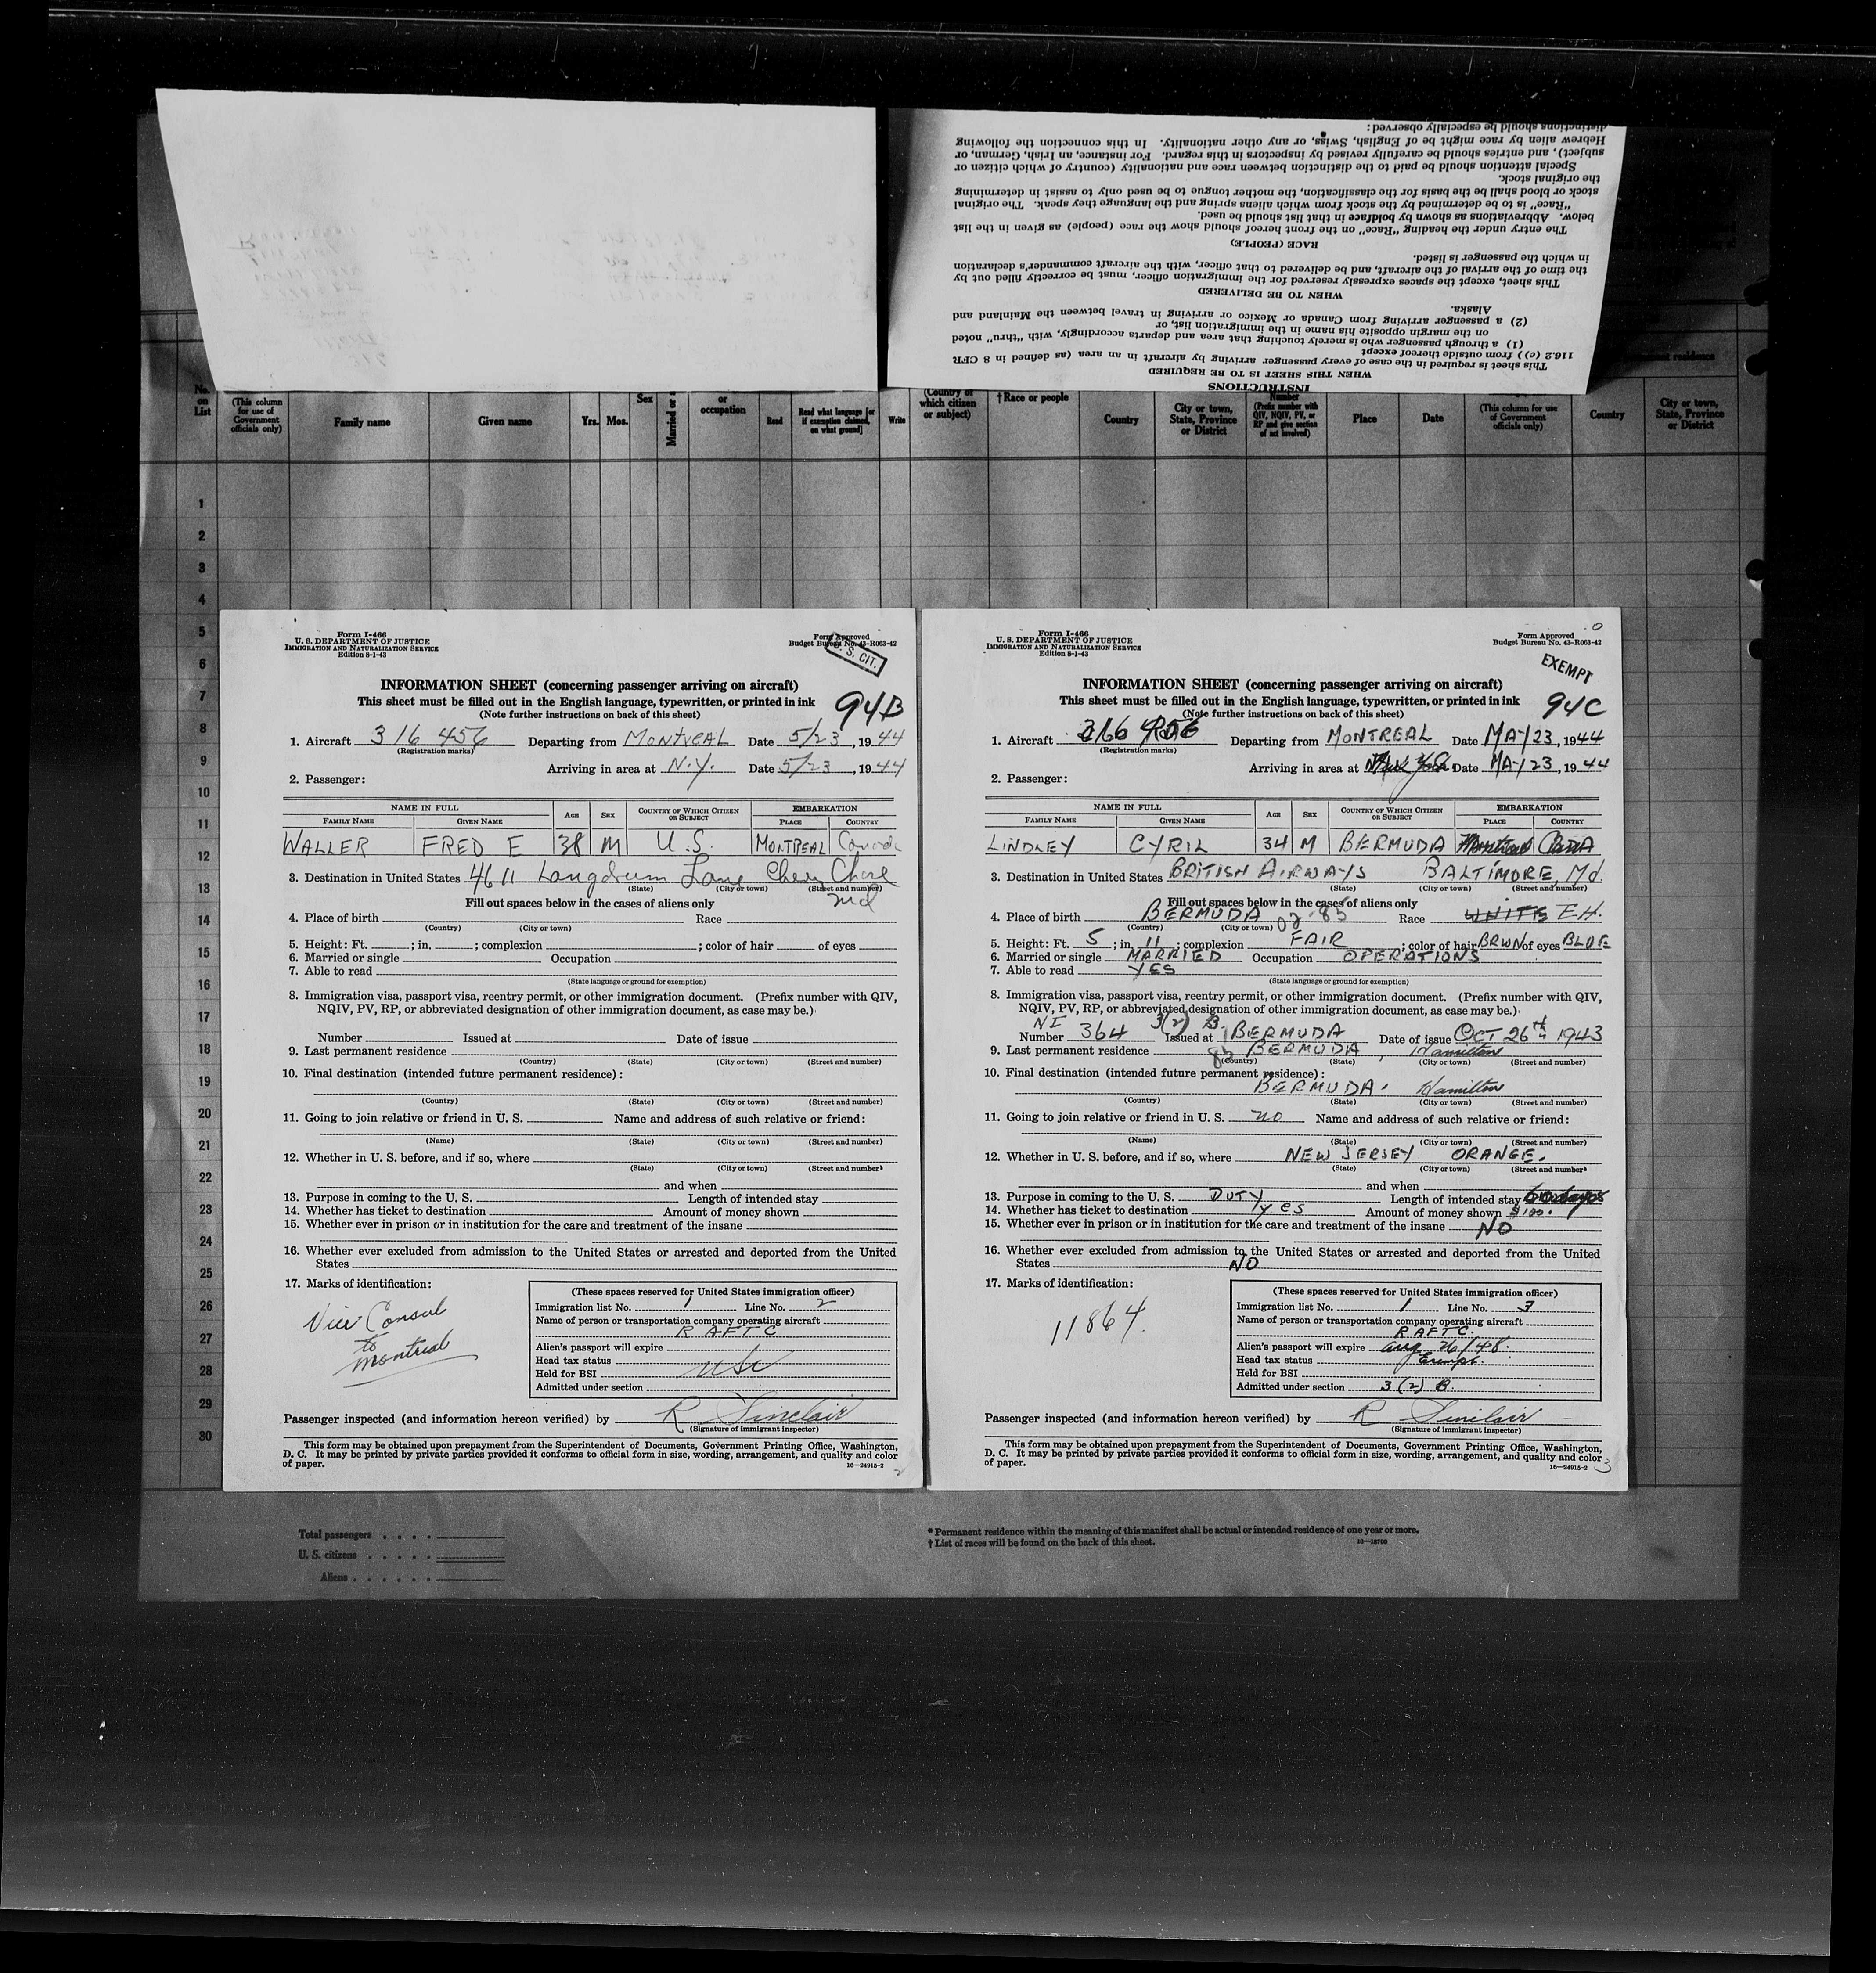 INSTRUCTIONS
WHEN THIS SHEET IS TO BE REQUIRED
This sheet is required in the case of every passenger arriving by aircraft in an area (as defined in 8 CFR
116.2 (c)) from outside thereof except
(1) a through passenger who is merely touching that area and departs accordingly, with "thru" noted
on the margin opposite his name in the immigration list, or
(2) a passenger arriving from Canada or Mexico or arriving in travel between the Mainland and
Alaska.
WHEN TO BE DELIVERED
This sheet, except the spaces expressly reserved for the immigration officer, must be correctly filled out by
the time of the arrival of the aircraft, and be delivered to that officer, with the aircraft commander's declaration
in which the passenger is listed.
RACE (PEOPLE)
The entry under the heading "Race" on the front hereof should show the race (people) as given in the list
below. Abbreviations as shown by boldface in that list should be used.
"Race" is to be determined by the stock from which aliens spring and the language they speak. The original
stock or blood shall be the basis for the classification, the mother tongue to be used only to assist in determining
the original stock.
Special attention should be paid to the distinction between race and nationality (country of which citizen or
subject), and entries should be carefully revised by inspectors in this regard. For instance, an Irish, German, or
Hebrew alien by race might be of English, Swiss, or any other nationality. In this connection the following
distinctions should be especially observed:
No. on List
(This column for use of Government officials only)
Family name
Given name
Yrs. Mos.
Sex
Married or
or occupation
Read
Read what language [or if exemption claimed, on what ground]
Write
(Country of which citizen or subject)
† Race or people
Country
City or town, State, Province or District
Number
(Prefix number with QIV, NQIV, PV, or RP and give section of act involved)
Place
Date
(This column for use of Government officials only)
Country
City or town, State, Province or District
residence
1
2
3
4
5
6
7
8
9
10
11
12
13
14
15
16
17
18
19
20
21
22
23
24
25
26
27
28
29
30
Form I-466
U. S. DEPARTMENT OF JUSTICE
IMMIGRATION AND NATURALIZATION SERVICE
Edition 8-1-43
Form Approved
Budget Bureau No. 43-R063-42
U. S. CIT.
INFORMATION SHEET (concerning passenger arriving on aircraft)
94B
This sheet must be filled out in the English language, typewritten, or printed in ink
(Note further instructions on back of this sheet)
1. Aircraft 316 456 Departing from MONTREAL Date 5/23, 1944
(Registration marks)
Arriving in area at N.Y. Date 5/23, 1944
2. Passenger:
NAME IN FULL AGE SEX COUNTRY OF WHICH CITIZEN OR SUBJECT EMBARKATION
FAMILY NAME GIVEN NAME PLACE COUNTRY
WALLER FRED E 38 M U.S. MONTREAL Canada
3. Destination in United States 4611 Langdrum Lane Chevy Chase
(State) (City or town) (Street and number)
Md
Fill out spaces below in the cases of aliens only
4. Place of birth Race
(Country) (City or town)
5. Height: Ft. ; in. ; complexion ; color of hair of eyes
6. Married or single Occupation
7. Able to read
(State language or ground for exemption)
8. Immigration visa, passport visa, reentry permit, or other immigration document. (Prefix number with QIV,
NQIV, PV, RP, or abbreviated designation of other immigration document, as case may be.)
Number Issued at Date of issue
9. Last permanent residence
(Country) (State) (City or town) (Street and number)
10. Final destination (intended future permanent residence):
(Country) (State) (City or town) (Street and number)
11. Going to join relative or friend in U. S. Name and address of such relative or friend:
(Name) (State) (City or town) (Street and number)
12. Whether in U. S. before, and if so, where
(State) (City or town) (Street and number)
and when
13. Purpose in coming to the U. S. Length of intended stay
14. Whether has ticket to destination Amount of money shown
15. Whether ever in prison or in institution for the care and treatment of the insane
16. Whether ever excluded from admission to the United States or arrested and deported from the United
States
17. Marks of identification:
Vice Consul
to
Montreal
(These spaces reserved for United States immigration officer)
Immigration list No. 1 Line No. 2
Name of person or transportation company operating aircraft
RAFTC
Alien's passport will expire
Head tax status USC
Held for BSI
Admitted under section
Passenger inspected (and information hereon verified) by R Sinclair
(Signature of immigrant inspector)
This form may be obtained upon prepayment from the Superintendent of Documents, Government Printing Office, Washington,
D. C. It may be printed by private parties provided it conforms to official form in size, wording, arrangement, and quality and color
of paper.
16—24915-2
2
Form I-466
U. S. DEPARTMENT OF JUSTICE
IMMIGRATION AND NATURALIZATION SERVICE
Edition 8-1-43
Form Approved
Budget Bureau No. 43-R063-42
EXEMPT
INFORMATION SHEET (concerning passenger arriving on aircraft)
94C
This sheet must be filled out in the English language, typewritten, or printed in ink
(Note further instructions on back of this sheet)
1. Aircraft 316 456 Departing from MONTREAL Date MAY 23, 1944
(Registration marks)
Arriving in area at New York Date MAY 23, 1944
2. Passenger:
NAME IN FULL AGE SEX COUNTRY OF WHICH CITIZEN OR SUBJECT EMBARKATION
FAMILY NAME GIVEN NAME PLACE COUNTRY
LINDLEY CYRIL 34 M BERMUDA Montreal
3. Destination in United States BRITISH AIRWAYS BALTIMORE, Md.
(State) (City or town) (Street and number)
Fill out spaces below in the cases of aliens only
4. Place of birth BERMUDA 02-85 Race WHITE E.H.
(Country) (City or town)
5. Height: Ft. 5; in. 11; complexion FAIR; color of hair BRWN of eyes BLUE
6. Married or single MARRIED Occupation OPERATIONS
7. Able to read YES
(State language or ground for exemption)
8. Immigration visa, passport visa, reentry permit, or other immigration document. (Prefix number with QIV,
NQIV, PV, RP, or abbreviated designation of other immigration document, as case may be.)
NI 3(2) B
Number 364 Issued at BERMUDA Date of issue OCT 26th 1943
9. Last permanent residence BERMUDA, Hamilton
(Country) (State) (City or town) (Street and number)
10. Final destination (intended future permanent residence):
BERMUDA. Hamilton
(Country) (State) (City or town) (Street and number)
11. Going to join relative or friend in U. S. no Name and address of such relative or friend:
(Name) (State) (City or town) (Street and number)
12. Whether in U. S. before, and if so, where NEW JERSEY ORANGE.
(State) (City or town) (Street and number)
and when
13. Purpose in coming to the U. S. DUTY Length of intended stay
14. Whether has ticket to destination yes Amount of money shown $100.
15. Whether ever in prison or in institution for the care and treatment of the insane NO
16. Whether ever excluded from admission to the United States or arrested and deported from the United
States NO
17. Marks of identification:
11864
(These spaces reserved for United States immigration officer)
Immigration list No. 1 Line No. 3
Name of person or transportation company operating aircraft
RAFTC.
Alien's passport will expire Aug 26/48.
Head tax status Exempt.
Held for BSI
Admitted under section 3(2) B.
Passenger inspected (and information hereon verified) by R Sinclair
(Signature of immigrant inspector)
This form may be obtained upon prepayment from the Superintendent of Documents, Government Printing Office, Washington,
D. C. It may be printed by private parties provided it conforms to official form in size, wording, arrangement, and quality and color
of paper.
16—24915-2
3
Total passengers
U. S. citizens
Aliens
* Permanent residence within the meaning of this manifest shall be actual or intended residence of one year or more.
† List of races will be found on the back of this sheet.